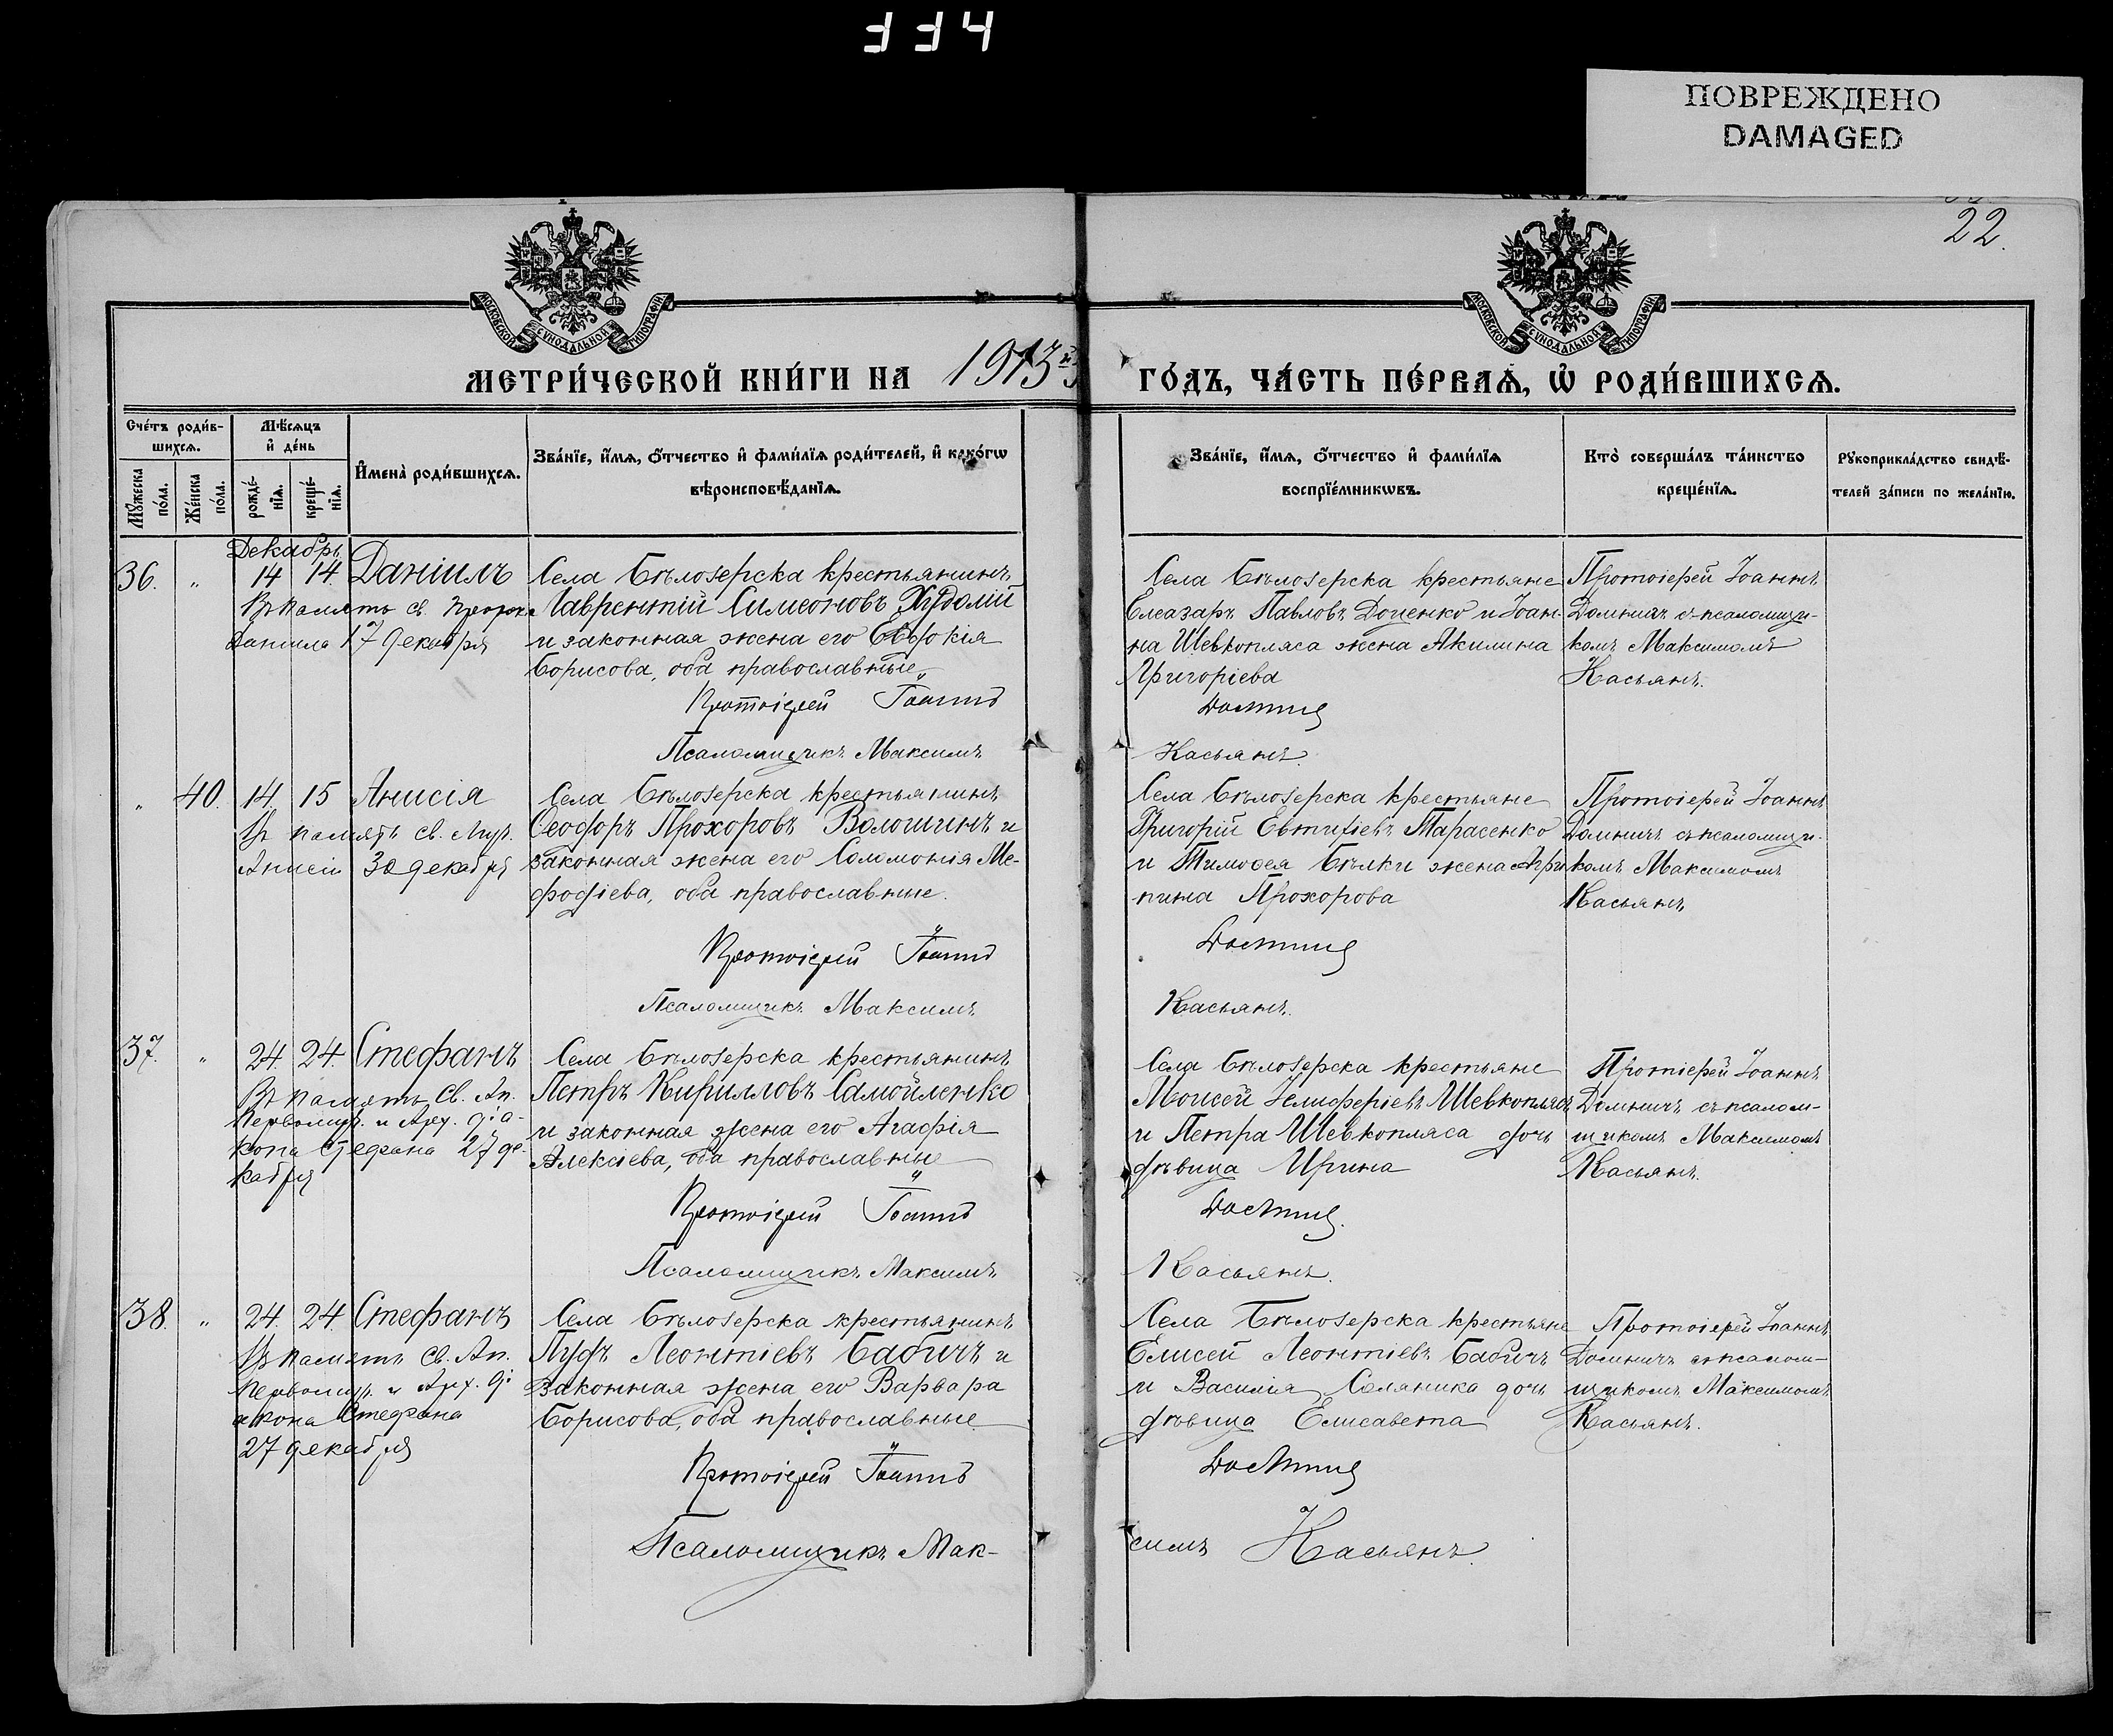 334
ПОВРЕЖДЕНО
DAMAGED
22.
МОСКОВСКОЙ СУНОДАЛЬНОЙ ТИПОГРАФІИ
МОСКОВСКОЙ СУНОДАЛЬНОЙ ТИПОГРАФІИ
МЕТРИ́ЧЕСКОЙ КНИ́ГИ НА 1913й ГО́ДЪ, ЧА́СТЬ ПЕ́РВАѦ, Ѡ҆ РОДИ́ВШИХСѦ.
Сче́тъ роди́в-
шихсѧ.
Мꙋ́жеска по́ла.
Же́нска по́ла.
Мѣ́сѧцъ
и҆ де́нь
рожде́-
нїѧ.
креще́-
нїѧ.
И҆мена̀ роди́вшихсѧ.
Зва́нїе, и҆́мѧ, ѻ҆́тчество и҆ фами́лїѧ роди́телей, и҆ како́гѡ
вѣроисповѣ́данїѧ.
Зва́нїе, и҆́мѧ, ѻ҆́тчество и҆ фами́лїѧ
воспрїе́мникѡвъ.
Кто̀ соверша́лъ та́инство
креще́нїѧ.
Рꙋкоприкла́дство свидѣ́-
телей за́писи по жела́нїю.
Декабрь
36. " 14 14. Даніилъ
Въ память св. Прор.
Даніила 17 декабря
Села Бѣлозерска крестьянинъ
Лаврентій Симеоновъ Худолій
и законная жена его Евдокія
Борисова, оба православные
Протоіерей Іоаннъ
Псаломщикъ Максимъ
Села Бѣлозерска крестьяне
Елеазаръ Павловъ Доценко и Іоан-
на Шевкопляса жена Акилина
Григоріева
Долинич
Касьянъ.
Протоіерей Іоаннъ
Долиничъ съ псаломщи-
комъ Максимомъ
Касьянъ.
" 40. 14. 15 Анисія
Въ память св. Муч.
Анисіи 30 декабря
Села Бѣлозерска крестьянинъ
Ѳеодоръ Прохоровъ Волошинъ и
законная жена его Соломонія Ме-
фодіева, оба православные.
Протоіерей Іоаннъ
Псаломщикъ Максимъ
Села Бѣлозерска крестьяне
Григорій Евтихіевъ Тарасенко
и Тимоѳея Бѣлки жена Агри
пина Прохорова
Долинич
Касьянъ.
Протоіерей Іоаннъ
Долиничъ съ псаломщи-
комъ Максимомъ
Касьянъ
37. " 24. 24. Стефанъ
Въ память Св. Ап.
Первомуч. и Арх. діа-
кона Стефана 27 де-
кабря
Села Бѣлозерска крестьянинъ
Петръ Кирилловъ Самойленко
и законная жена его Агафія
Алексіева, оба православные
Протоіерей Іоаннъ
Псаломщикъ Максимъ
Села Бѣлозерска крестьяне
Моисей Елифтеріевъ Шевкоплясъ
и Петра Шевкопляса дочь
дѣвица Ирина
Долинич.
Касьянъ.
Протіерей Іоаннъ
Долиничъ съ псалом-
щикомъ Максимомъ
Касьянъ.
38. " 24. 24. Стефанъ
Въ память Св. Ап.
Первомуч. и Арх. ді
акона Стефана
27 декабря
Села Бѣлозерска крестьянинъ
Пудъ Леонтіевъ Бабичъ и
законная жена его Варвара
Борисова, оба православные
Протоіерей Іоаннъ
Псаломщикъ Мак-
Села Бѣлозерска крестьяне
Елисей Леонтіевъ Бабичъ
и Василія Соляника дочь
дѣвица Елисавета
Долинич
симъ Касьянъ.
Протоіерей Іоаннъ
Долиничъ съ псалом-
щикомъ Максимомъ
Касьянъ.